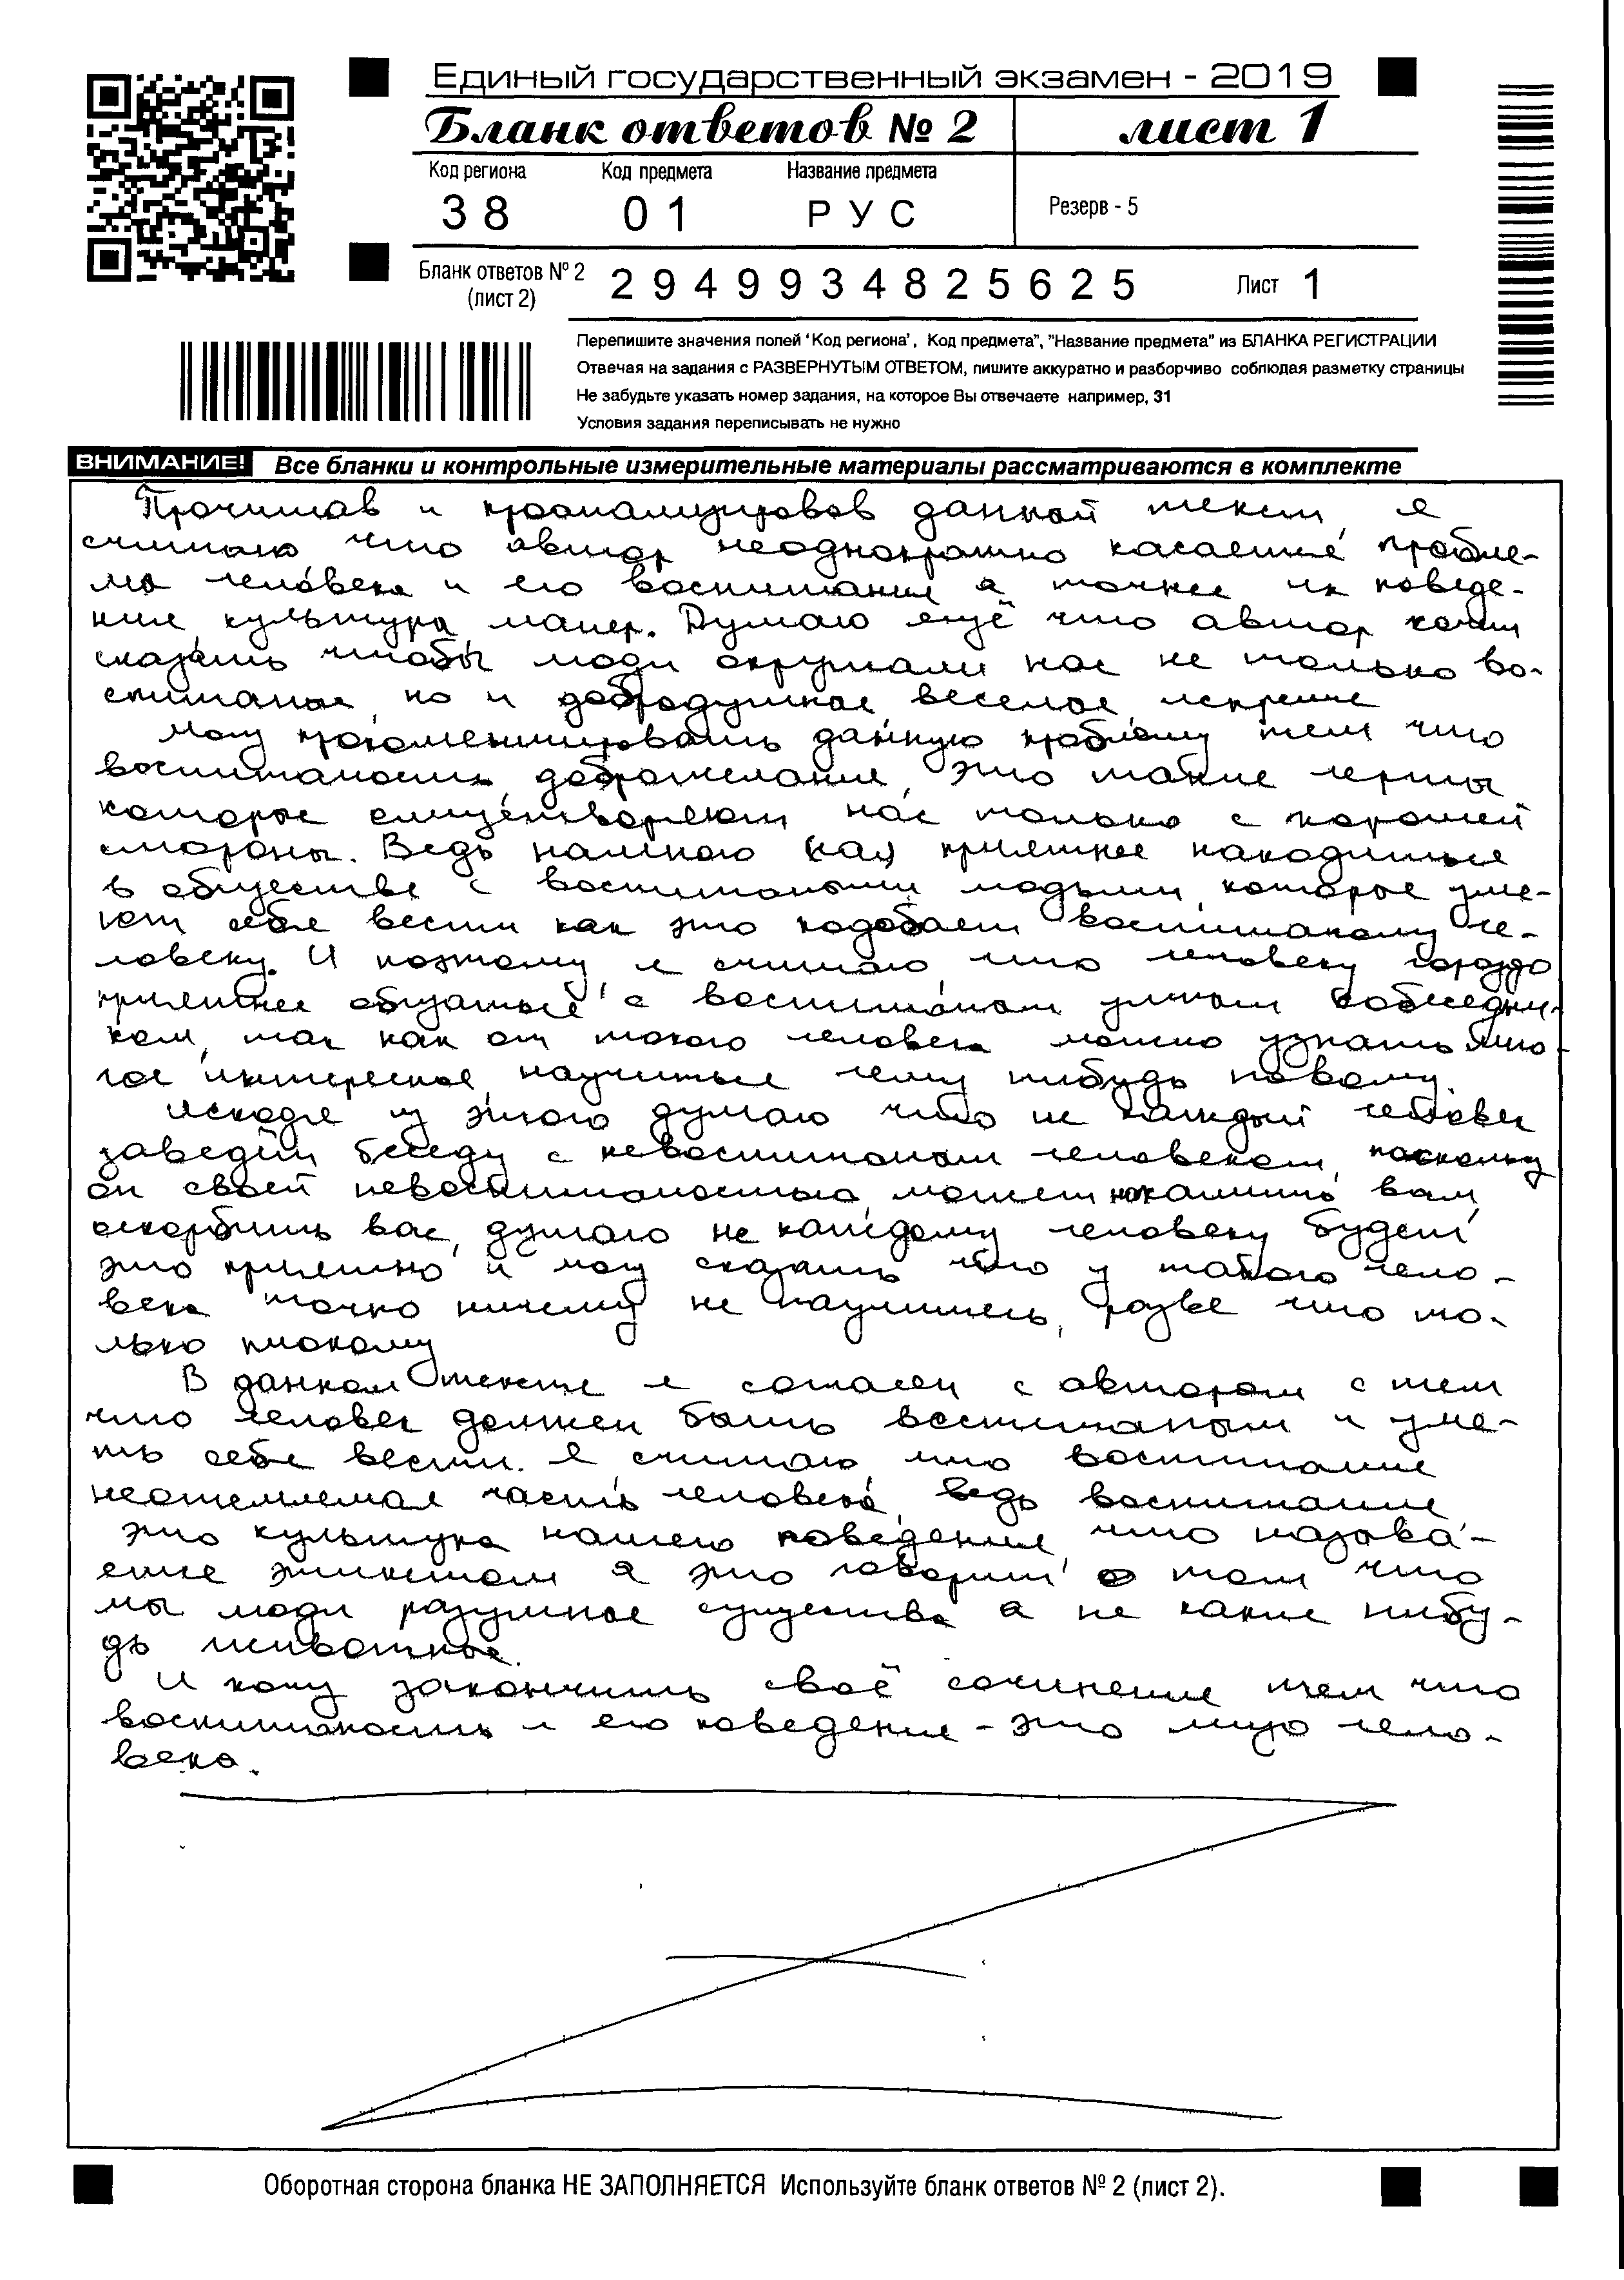 Единый государственный экзамен - 2019
Бланк ответов № 2
лист 1
Код региона Код предмета Название предмета
38 01 РУС
Резерв - 5
Бланк ответов № 2
(лист 2)
2949934825625
Лист 1
Перепишите значения полей "Код региона", Код предмета", "Название предмета" из БЛАНКА РЕГИСТРАЦИИ
Отвечая на задания с РАЗВЕРНУТЫМ ОТВЕТОМ, пишите аккуратно и разборчиво соблюдая разметку страницы
Не забудьте указать номер задания, на которое Вы отвечаете например, 31
Условия задания переписывать не нужно
ВНИМАНИЕ! Все бланки и контрольные измерительные материалы рассматриваются в комплекте
Прочитав и проанализировав данный текст, я
считаю что автор неоднократно касается пробле-
мы человека и его воспитания а точнее их поведе-
ния, культура, манер. Думаю ещё что автор хочет
сказать чтобы люди окружали нас не только во-
спитаные, но и добродушные, веселые, искрение
Могу прокоментировать данную проблему тем что
воспитаность, доброжелание, это такие черты
которые олицетворяют нас только с хорошей
стороны. Ведь намного приятнее находиться
в обществе с воспитаными людьми, которые уме-
ют себя вести как это подобает воспитаному че-
ловеку. И поэтому я считаю, что человеку гораздо
приятнее общаться с воспитаным умным собеседни-
ком, так как от такого человека можно узнать мно-
гое интересное, научиться чему нибудь новому.
Исходя из этого думаю что не каждый человек
заведёт беседу с невоспитаным человеком, поскольку
он своей невоспитаностью может нахамить вам,
оскорбить вас, думаю не каждому человеку будет
это приятно и могу сказать что у такого чело-
века точно ничему не научишесь, разве что то-
лько плохому
В данном тексте я согласен с автором с тем
что человек должен быть воспитаным и уме-
ть себя вести. Я считаю, что воспитание
неотемлемая часть человека, ведь воспитание
это культура нашего поведения, что называ-
ется этикетом а это говорит о том что
мы люди разумные существа а не какие нибу-
дь животные.
И хочу закончить своё сочинение тем что
воспитаность и его поведение - это лицо чело-
века.
Оборотная сторона бланка НЕ ЗАПОЛНЯЕТСЯ Используйте бланк ответов № 2 (лист 2).